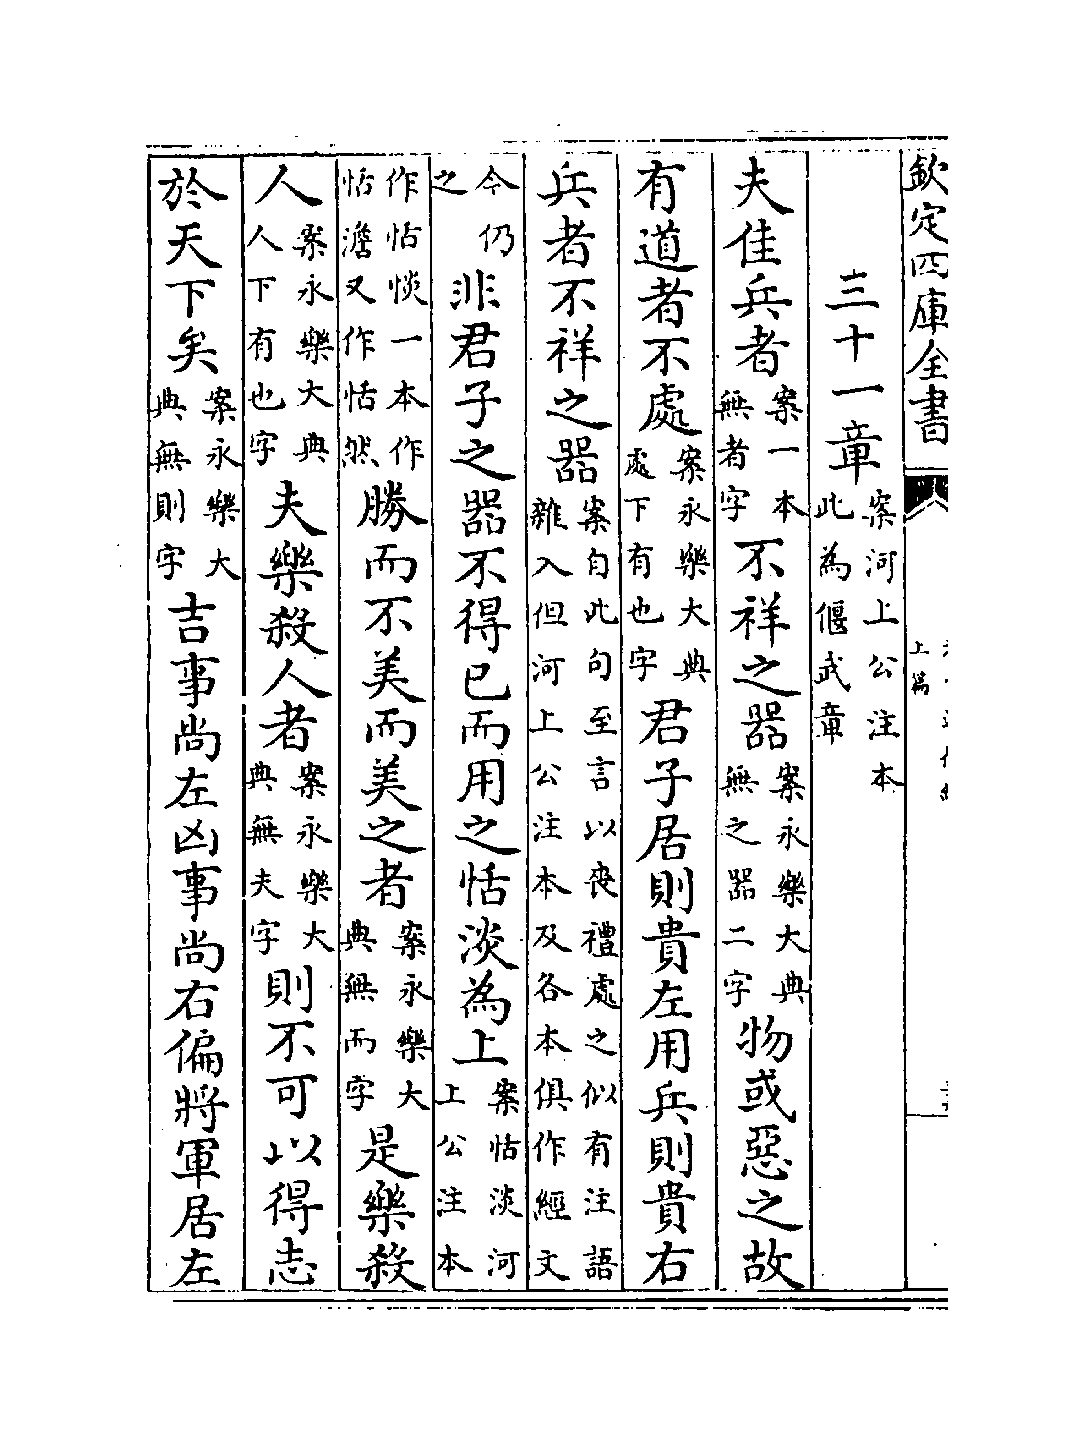 欽定四庫全書
上篇
三十一章案河上公注本此為偃武章
夫佳兵者案一本無者字不祥之器案永樂大典無之器二字物或惡之故
有道者不處案永樂大典處下有也字君子居則貴左用兵則貴右
兵者不祥之器案自此句至言以喪禮處之似有注語雜入但河上公注本及各本俱作經文
今仍之非君子之器不得已而用之恬淡為上案恬淡河上公注本
作恬惔一本作恬澹又作恬然勝而不美而美之者案永樂大典無而字是樂殺
人案永樂大典人下有也字夫樂殺人者案永樂大典無夫字則不可以得志
於天下矣案永樂大典無則字吉事尚左凶事尚右偏將軍居左